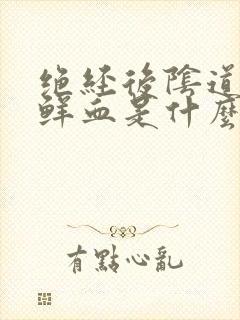 绝経後陰道
鮮血是什麼
有點心亂